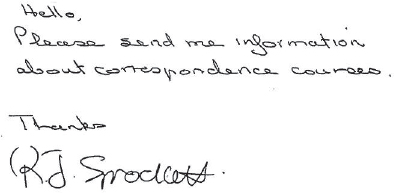 Hello,
Please send me information
about correspondence courses.
Thanks
R.J. Sprockett.